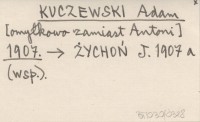 KUCZEWSKI Adam
[omyłkowo zamiast Antoni]
1907. → ŻYCHOŃ J. 1907 a
(wsp.).